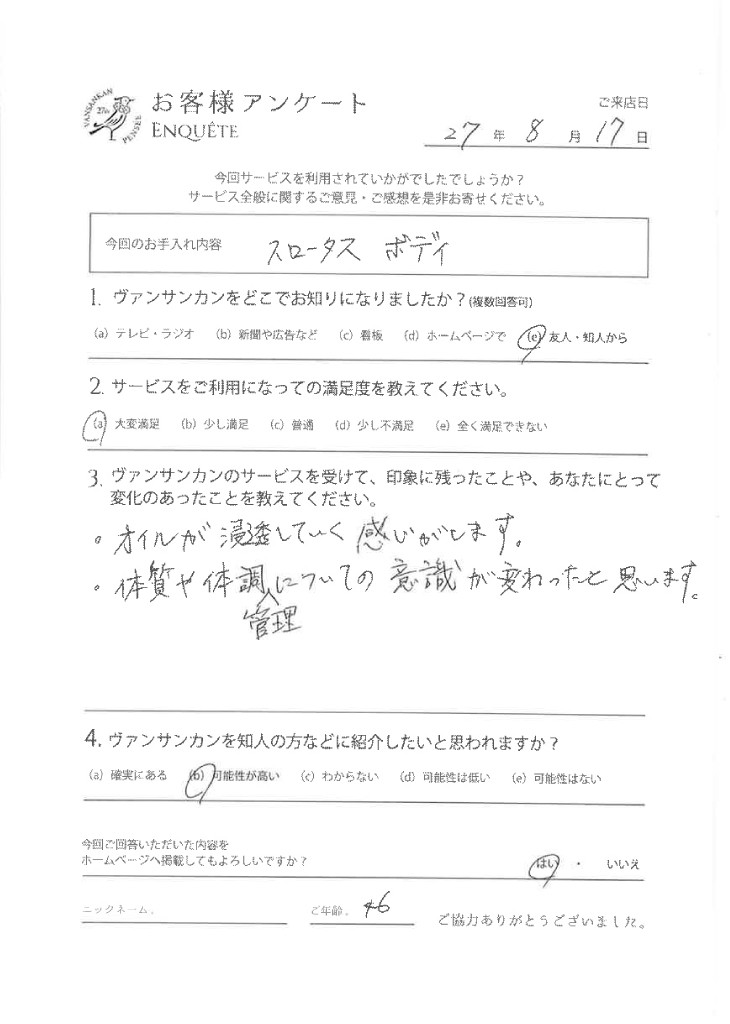 VANSANKAN 27th PENSÉE
お客様アンケート
ENQUÊTE
ご来店日
27年8月17日
今回サービスを利用されていかがでしたでしょうか?
サービス全般に関するご意見・ご感想を是非お寄せください。
今回のお手入れ内容 スロータス ボディ
1. ヴァンサンカンをどこでお知りになりましたか?(複数回答可)
(a) テレビ・ラジオ (b) 新聞や広告など (c) 看板 (d) ホームページで (e) 友人・知人から
2. サービスをご利用になっての満足度を教えてください。
(a) 大変満足 (b) 少し満足 (c) 普通 (d) 少し不満足 (e) 全く満足できない
3. ヴァンサンカンのサービスを受けて、印象に残ったことや、あなたにとって
変化のあったことを教えてください。
・オイルが浸透していく感じがします。
・体質や体調についての意識が変わったと思います。
管理
4. ヴァンサンカンを知人の方などに紹介したいと思われますか?
(a) 確実にある (b) 可能性が高い (c) わからない (d) 可能性は低い (e) 可能性はない
今回ご回答いただいた内容を
ホームページへ掲載してもよろしいですか? はい ・ いいえ
ニックネーム. ご年齢. 46 ご協力ありがとうございました。